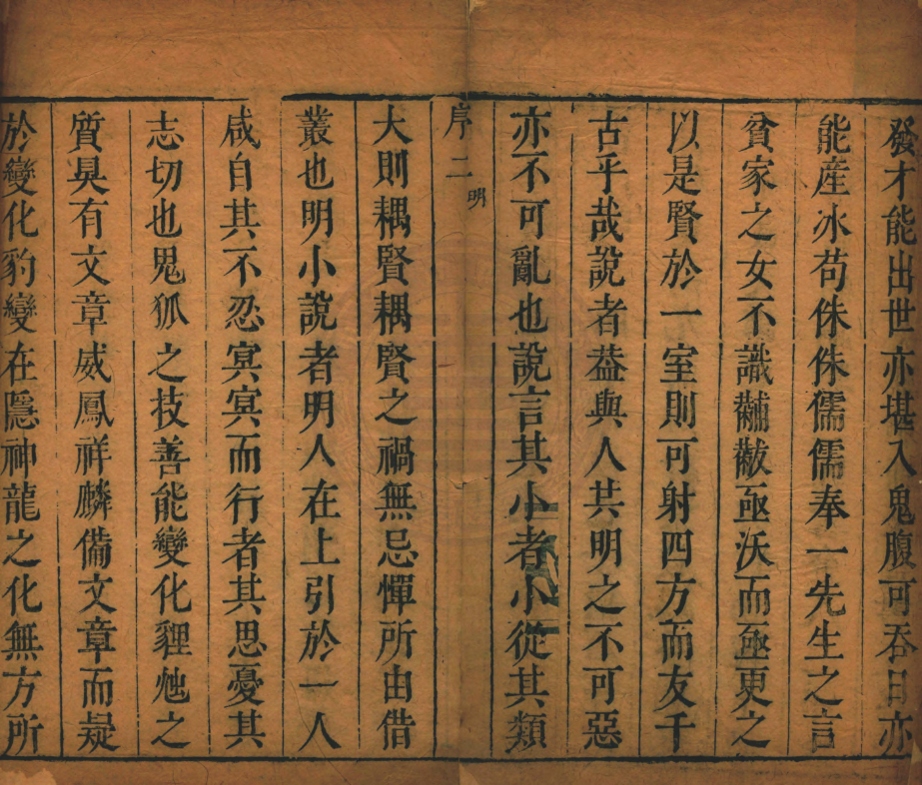 發才能出世亦堪入鬼腹可吞日亦
能產冰苟侏侏儒儒奉一先生之言
貧家之女不識黼黻亟沃而亟更之
以是賢於一室則可射四方而友千
古乎哉說者葢與人共明之不可惡
亦不可亂也說言其小者小從其類
序二 明
大則耦賢耦賢之禍無忌憚所由借
叢也明小說者明人在上引於一人
咸自其不忍冥冥而行者其思憂其
志切也鬼狐之技善能變化貍虵之
質具有文章威鳳祥麟備文章而疑
於變化豹變在隱神龍之化無方所